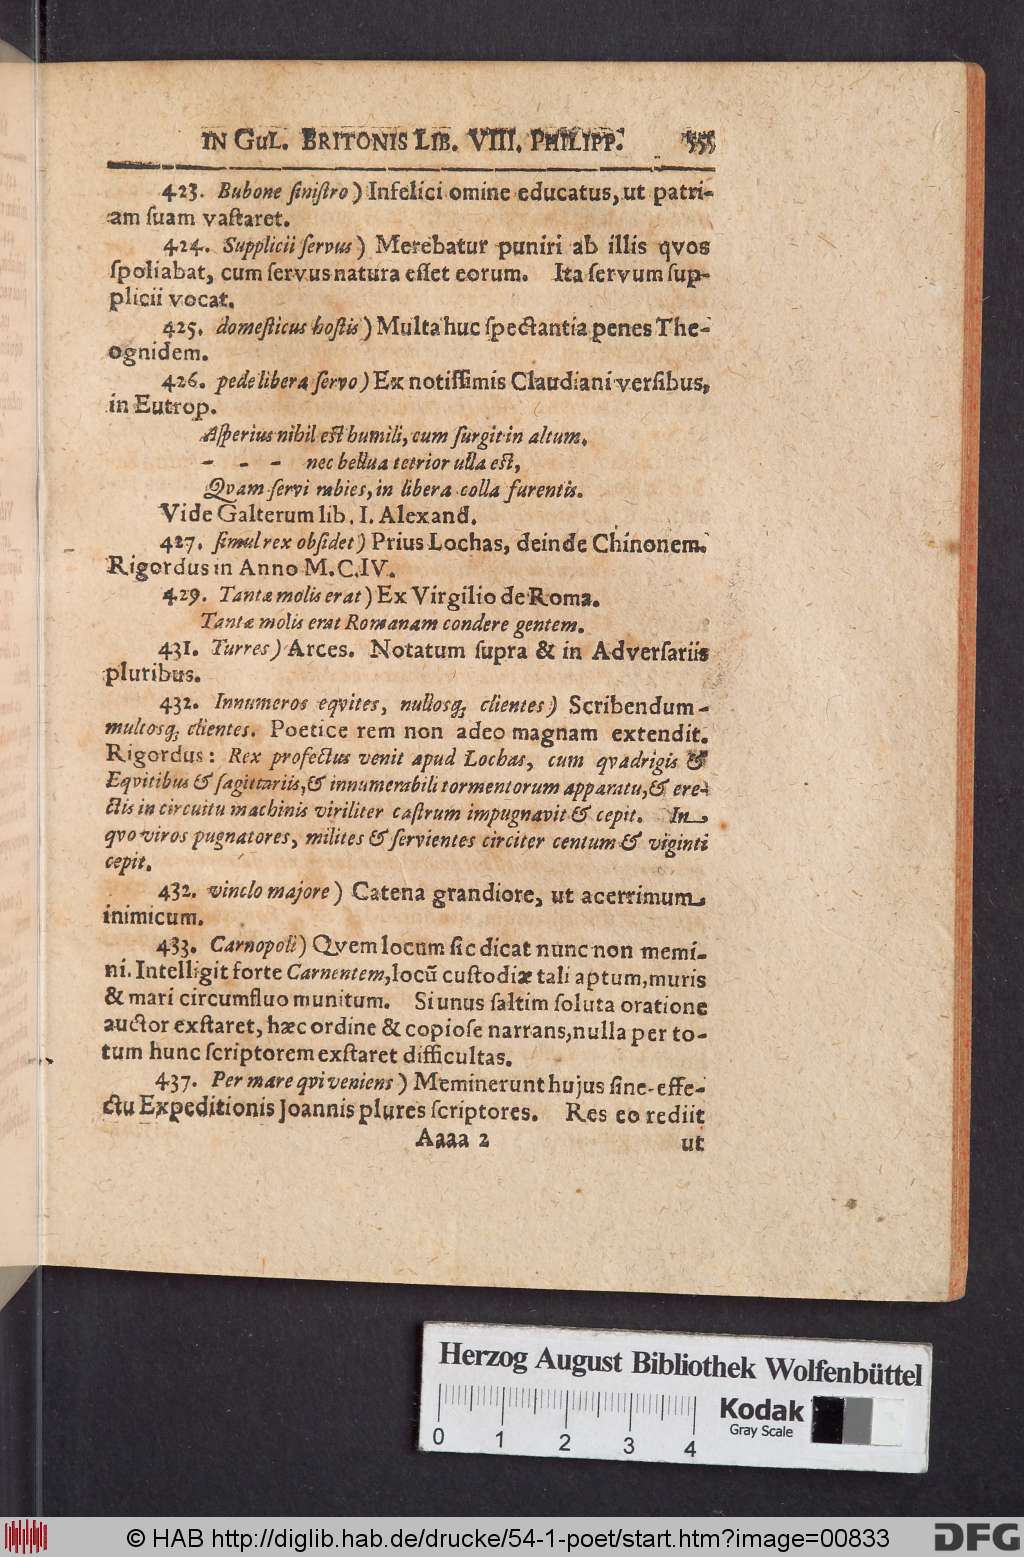 IN GUL. BRITONIS LIB. VIII. PHILIPP. 555
423. Bubone ſiniſtro) Infelici omine educatus, ut patri-
am ſuam vaſtaret.
424. Supplicii ſervus) Merebatur puniri ab illis qvos
ſpoliabat, cum ſervus natura eſſet eorum. Ita ſervum ſup-
plicii vocat.
425. domeſticus hoſtis) Multa huc ſpectantia penes The-
ognidem.
426. pede libera ſervo) Ex notiſſimis Claudiani verſibus,
in Eutrop.
Aſperius nihil eſt humili, cum ſurgit in altum.
- - - nec bellua tetrior ulla eſt,
Qvam ſervi rabies, in libera colla furentis.
Vide Galterum lib. I. Alexand.
427. ſimul rex obſidet) Prius Lochas, deinde Chinonem.
Rigordus in Anno M.C.IV.
429. Tantæ molis erat) Ex Virgilio de Roma.
Tantæ molis erat Romanam condere gentem.
431. Turres) Arces. Notatum ſupra & in Adverſariis
pluribus.
432. Innumeros eqvites, nullosq; clientes) Scribendum
multosq; clientes. Poetice rem non adeo magnam extendit.
Rigordus: Rex profectus venit apud Lochas, cum qvadrigis &
Eqvitibus & ſagittariis, & innumerabili tormentorum apparatu, & ere-
ctis in circuitu machinis viriliter caſtrum impugnavit & cepit. In
qvo viros pugnatores, milites & ſervientes circiter centum & viginti
cepit.
432. vinclo majore) Catena grandiore, ut acerrimum
inimicum.
433. Carnopoli) Qvem locum ſic dicat nunc non memi-
ni. Intelligit forte Carnentem, locū cuſtodiæ tali aptum, muris
& mari circumfluo munitum. Si unus ſaltim ſoluta oratione
auctor exſtaret, hæc ordine & copioſe narrans, nulla per to-
tum hunc ſcriptorem exſtaret difficultas.
437. Per mare qvi veniens) Meminerunt hujus ſine effe-
ctu Expeditionis Joannis plures ſcriptores. Res eo rediit
Aaaa 2 ut
Herzog August Bibliothek Wolfenbüttel
0 1 2 3 4
Kodak
Gray Scale
© HAB http://diglib.hab.de/drucke/54-1-poet/start.htm?image=00833
DFG